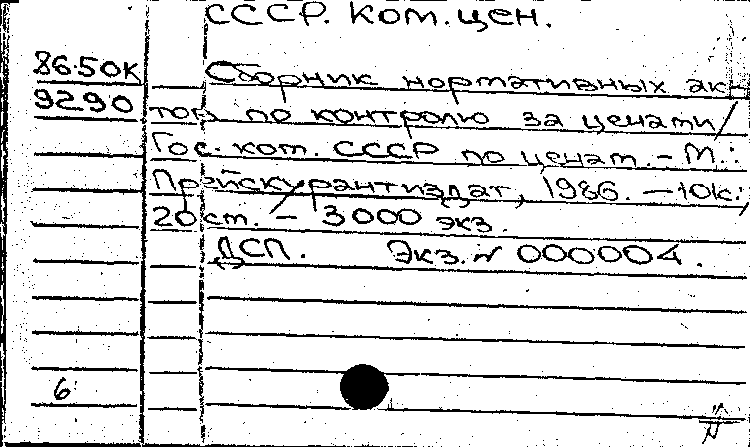 СССР. Ком. цен.
86.50К Сборник нормативных ак-
92.90 тов по контролю за ценами /
Гос. ком. СССР по ценам. - М.:
Прейскурантиздат, 1986. - 10к.;
20 см. - 3000 экз.
ДСП. Экз. N 000004.
6